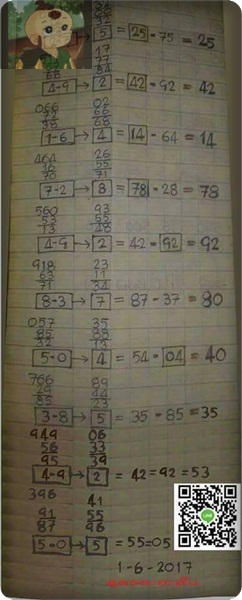 17
77
68 84
4-9 → 2 = 42 - 92 = 42
5 = 25 - 75 = 25
066 02
72 66
38 68
1-6 → 4 = 14 - 64 = 14
464 26
16 55
70 71
7-2 → 8 = 78 - 28 = 78
560 93
53 55
13 48
4-9 → 2 = 42 - 92 = 92
918 23
63 11
71 34
8-3 → 7 = 87 - 37 = 80
057 35
85 88
32 13
5-0 → 4 = 54 - 04 = 40
766 89
29 44
85 23
3-8 → 5 = 35 - 85 = 35
949 06
56 33
95 39
4-9 → 2 = 42 = 92 = 53
396 41
91 55
87 96
5-0 → 5 = 55 = 05
1-6-2017